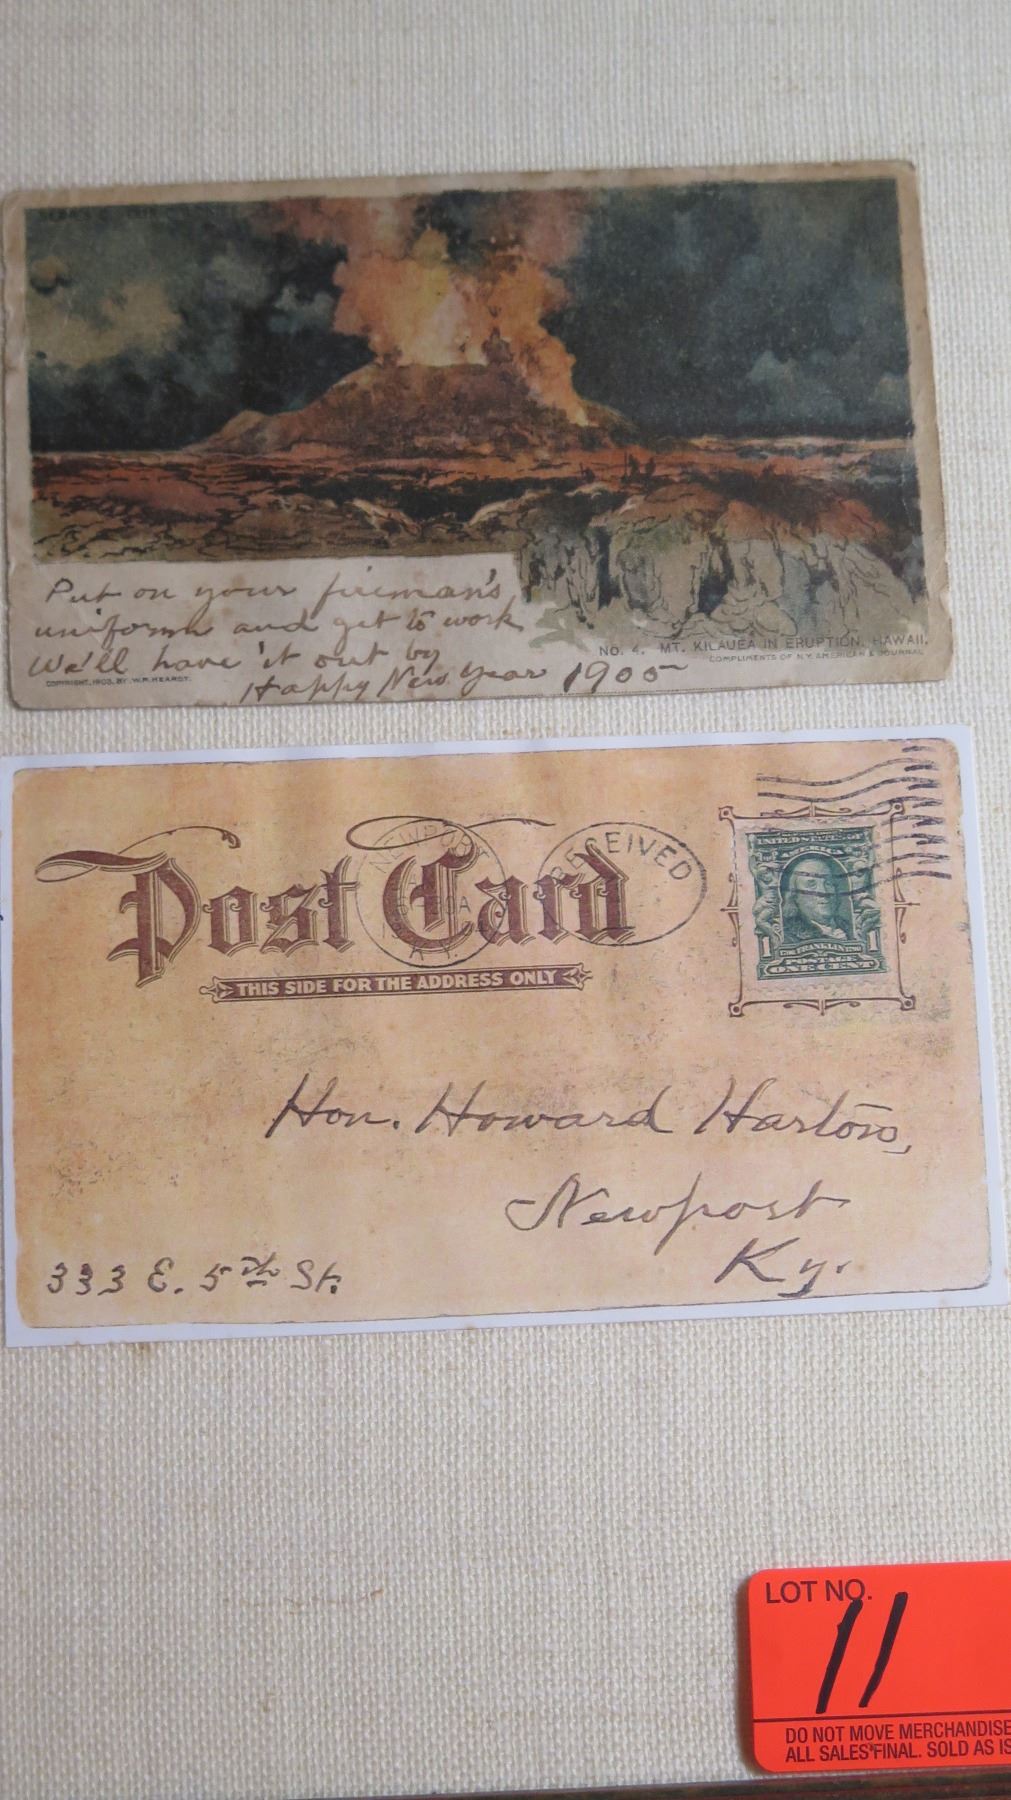 Put on your fireman's
uniform and get to work
We'll have 'it out by
Happy New Year 1905
NO. 4. MT. KILAUEA IN ERUPTION, HAWAII.
COMPLIMENTS OF N.Y. AMERICAN & JOURNAL
COPYRIGHT, 1903, BY W.R. HEARST.
Post Card
THIS SIDE FOR THE ADDRESS ONLY
NEWPORT
RECEIVED
UNITED STATES OF
AMERICA
1 FRANKLIN 1
POSTAGE
ONE CENT
Hon. Howard Harlow,
Newport
Ky.
333 E. 5th St.
LOT NO.
11
DO NOT MOVE MERCHANDISE
ALL SALES FINAL. SOLD AS IS